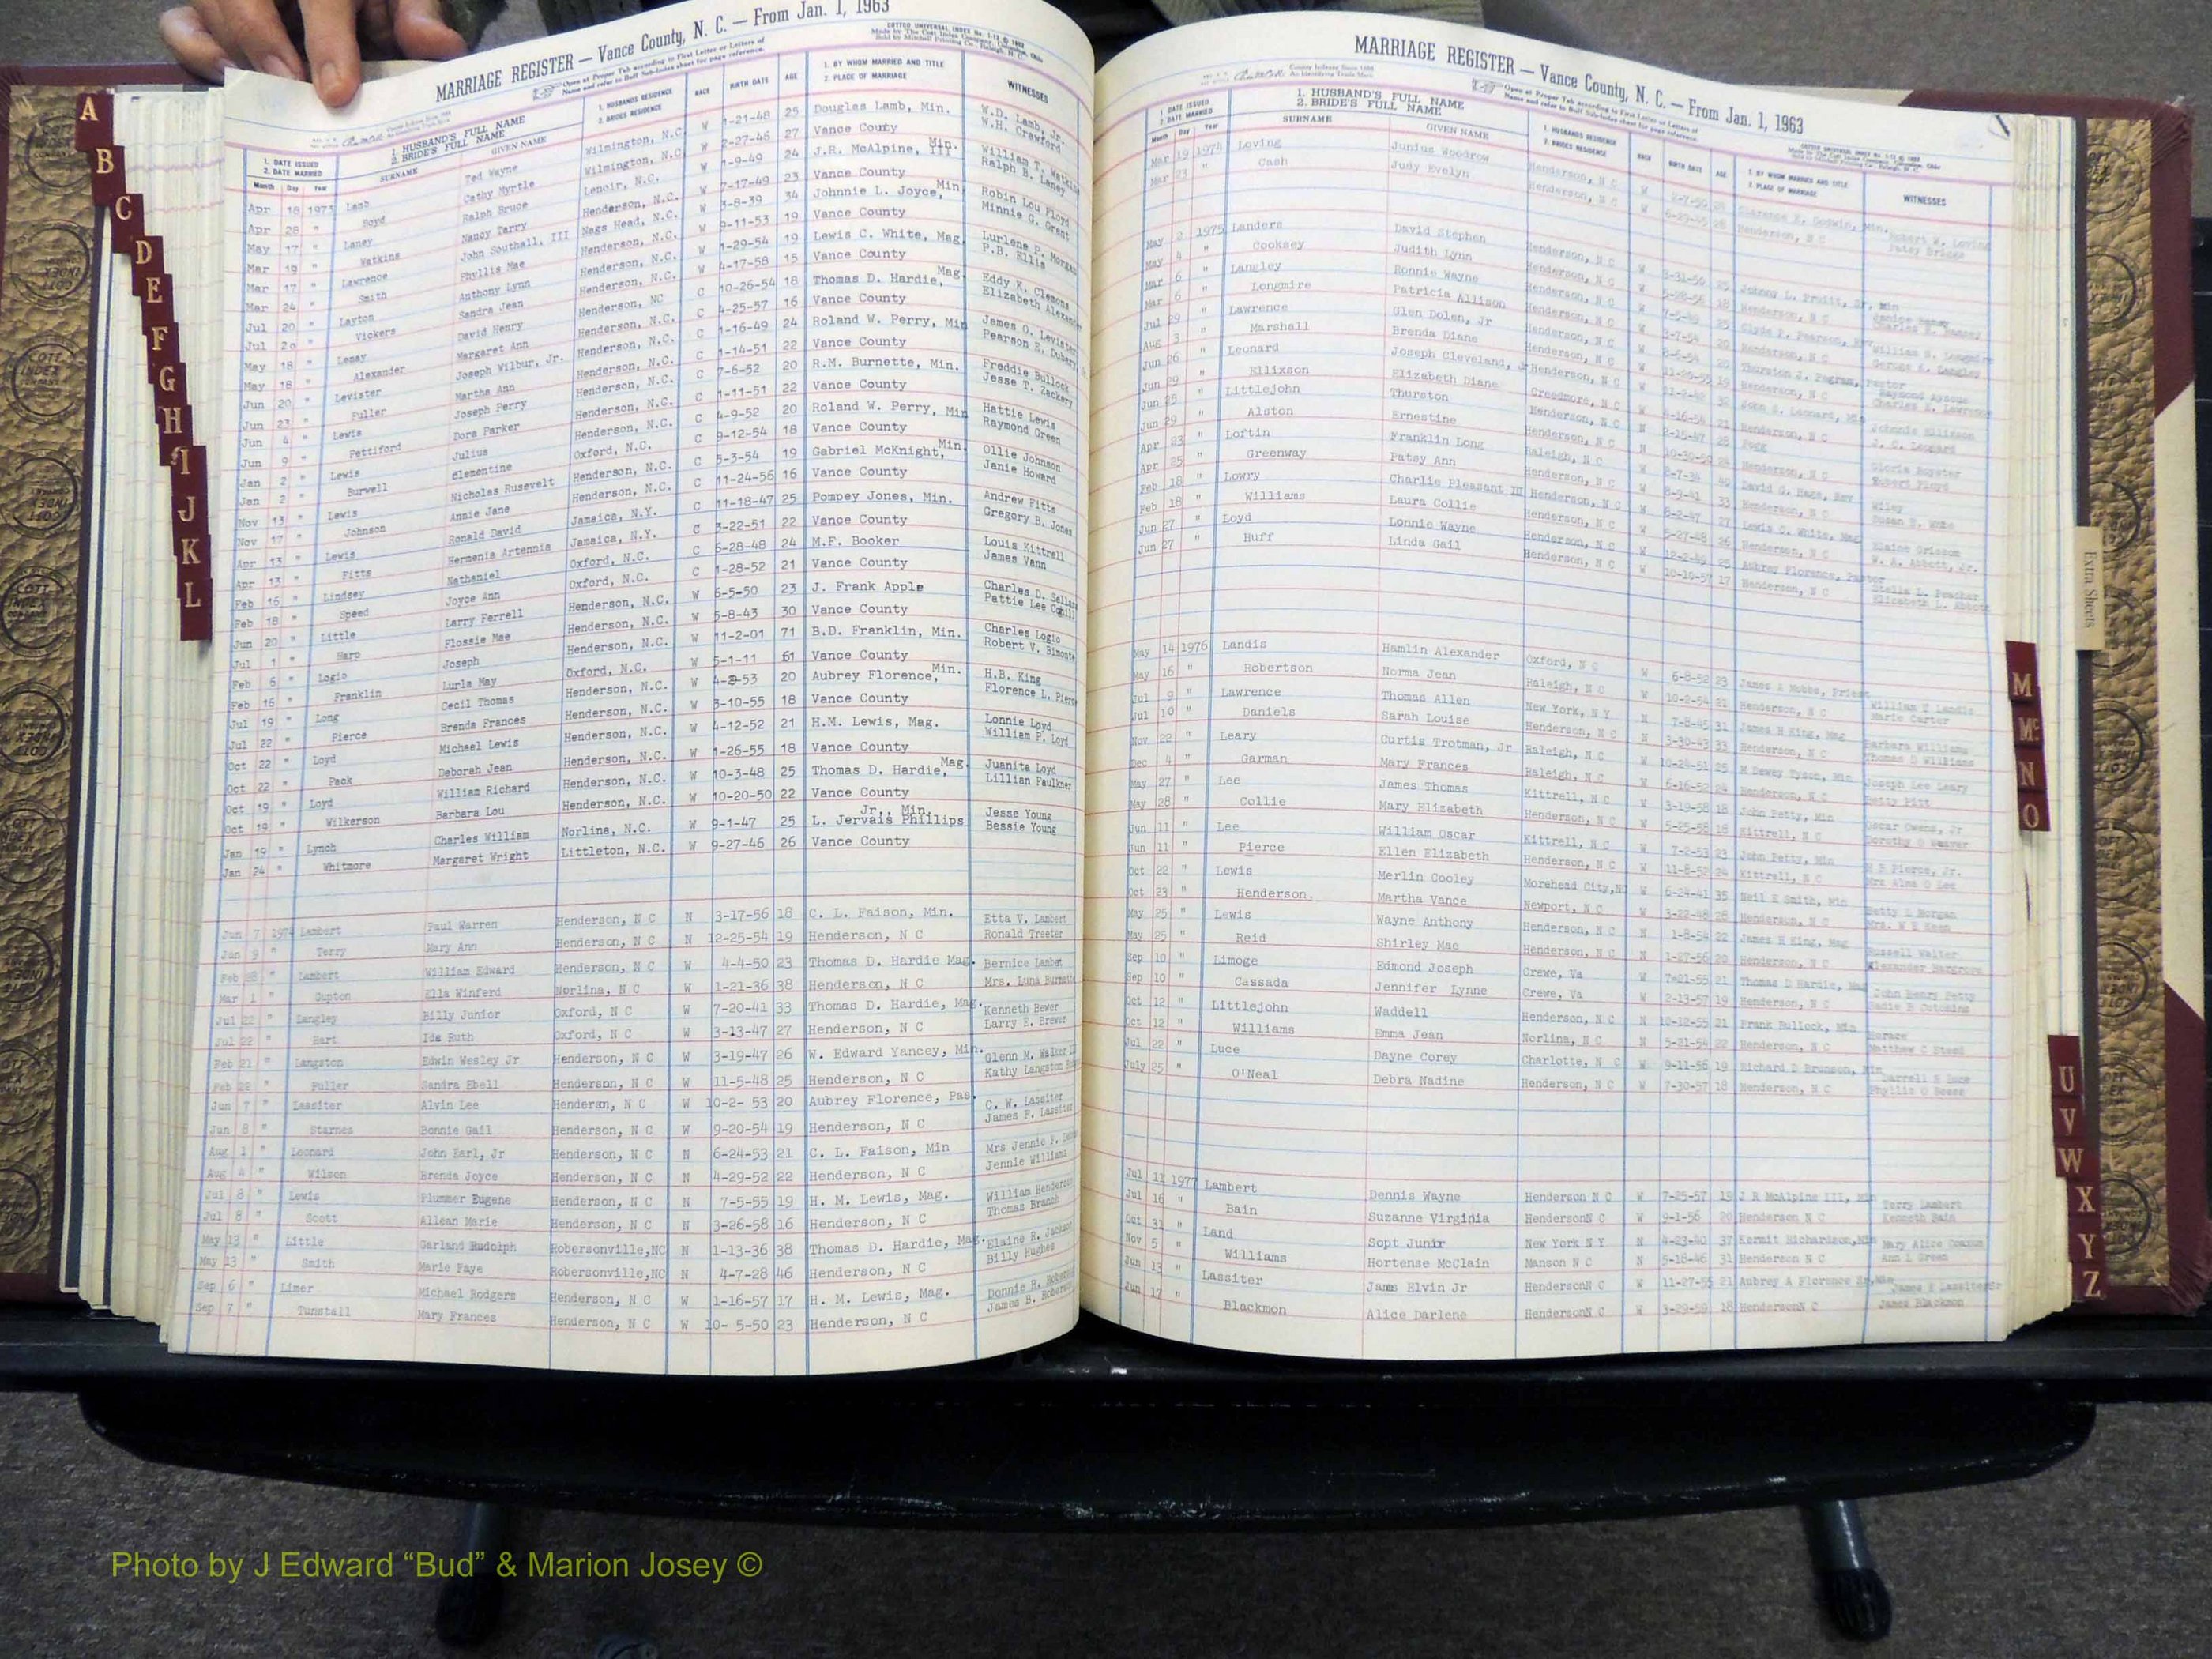 MARRIAGE REGISTER — Vance County, N. C. — From Jan. 1, 1963
Open at Proper Tab according to First Letter or Letters of
Name and refer to Buff Sub-Index sheet for page reference.
COTTCO UNIVERSAL INDEX
Made by The Cott Index Company, Ohio
Sold by Mitchell Printing Co., Raleigh, N. C.
1. DATE ISSUED 1. HUSBAND'S FULL NAME 1. HUSBANDS RESIDENCE 1. BY WHOM MARRIED AND TITLE
2. DATE MARRIED 2. BRIDE'S FULL NAME 2. BRIDES RESIDENCE RACE BIRTH DATE AGE 2. PLACE OF MARRIAGE WITNESSES
Month Day Year SURNAME GIVEN NAME
Apr 18 1973 Lamb Ted Wayne Wilmington, N.C. W 1-21-48 25 Douglas Lamb, Min. W.D. Lamb, Jr.
Apr 28 " Boyd Cathy Myrtle Wilmington, N.C. W 2-27-46 27 Vance County W.H. Crawford
May 17 " Laney Ralph Bruce Lenoir, N.C. W 1-9-49 24 J.R. McAlpine, III Min. William T. Watkins
Mar 19 " Watkins Nancy Tarry Henderson, N.C. W 7-17-49 23 Vance County Ralph B. Laney
Mar 17 " Lawrence John Southall, III Nags Head, N.C. W 3-8-39 34 Johnnie L. Joyce, Min. Robin Lou Floyd
Mar 24 " Smith Phyllis Mae Henderson, N.C. W 9-11-53 19 Vance County Minnie G. Grant
Jul 20 " Layton Anthony Lynn Henderson, N.C. W 1-29-54 19 Lewis C. White, Mag. Lurlene P. Morgan
Jul 20 " Vickers Sandra Jean Henderson, N.C. W 4-17-58 15 Vance County P.B. Ellis
May 18 " Lemay David Henry Henderson, NC C 10-26-54 18 Thomas D. Hardie, Mag. Eddy K. Clemons
May 18 " Alexander Margaret Ann Henderson, N.C. C 4-25-57 16 Vance County Elizabeth Alexander
Jun 20 " Levister Joseph Wilbur, Jr. Henderson, N.C. C 1-16-49 24 Roland W. Perry, Min James O. Levister
Jun 23 " Fuller Martha Ann Henderson, N.C. C 1-14-51 22 Vance County Pearson E.
Jun 4 " Lewis Joseph Perry Henderson, N.C. C 7-6-52 20 R.M. Burnette, Min. Freddie Bullock
Jun 9 " Pettiford Dora Parker Henderson, N.C. C 1-11-51 22 Vance County Jesse T. Zackery
Jan 2 " Lewis Julius Henderson, N.C. C 4-9-52 20 Roland W. Perry, Min Hattie Lewis
Jan 2 " Burwell Clementine Oxford, N.C. C 9-12-54 18 Vance County Raymond Green
Nov 13 " Lewis Nicholas Rusevelt Henderson, N.C. C 5-3-54 19 Gabriel McKnight, Min. Ollie Johnson
Nov 17 " Johnson Annie Jane Henderson, N.C. C 11-24-56 16 Vance County Janie Howard
Apr 13 " Lewis Ronald David Jamaica, N.Y. C 11-18-47 25 Pompey Jones, Min. Andrew Fitts
Apr 13 " Fitts Hermenia Artennis Jamaica, N.Y. C 3-22-51 22 Vance County Gregory B. Jones
Feb 16 " Lindsey Nathaniel Oxford, N.C. C 6-28-48 24 M.F. Booker Louis Kittrell
Feb 18 " Speed Joyce Ann Oxford, N.C. C 1-28-52 21 Vance County James Vann
Jun 20 " Little Larry Ferrell Henderson, N.C. W 5-5-50 23 J. Frank Apple Charles D. Sellars
Jul 1 " Harp Flossie Mae Henderson, N.C. W 5-8-43 30 Vance County Pattie Lee
Feb 6 " Logio Joseph Henderson, N.C. W 11-2-01 71 B.D. Franklin, Min. Charles Logio
Feb 16 " Franklin Lurla May Oxford, N.C. W 5-1-11 61 Vance County Robert V.
Jul 19 " Long Cecil Thomas Henderson, N.C. W 4-2-53 20 Aubrey Florence, Min. H.B. King
Jul 22 " Pierce Brenda Frances Henderson, N.C. W 3-10-55 18 Vance County Florence L. Pierce
Oct 22 " Loyd Michael Lewis Henderson, N.C. W 4-12-52 21 H.M. Lewis, Mag. Lonnie Loyd
Oct 22 " Pack Deborah Jean Henderson, N.C. W 1-26-55 18 Vance County William P. Loyd
Oct 19 " Loyd William Richard Henderson, N.C. W 10-3-48 25 Thomas D. Hardie, Mag. Juanita Loyd
Oct 19 " Wilkerson Barbara Lou Henderson, N.C. W 10-20-50 22 Vance County Lillian Faulkner
Jan 19 " Lynch Charles William Norlina, N.C. W 9-1-47 25 L. Jervais Phillips Jr., Min. Jesse Young
Jan 24 " Whitmore Margaret Wright Littleton, N.C. W 9-27-46 26 Vance County Bessie Young
Jun 7 1974 Lambert Paul Warren Henderson, N C N 3-17-56 18 C. L. Faison, Min. Etta V. Lambert
Jun 9 " Terry Mary Ann Henderson, N C N 12-25-54 19 Henderson, N C Ronald Treeter
Feb 28 " Lambert William Edward Henderson, N C W 4-4-50 23 Thomas D. Hardie Mag. Bernice Lambert
Mar 1 " Gupton Ella Winferd Norlina, N C W 1-21-36 38 Henderson, N C Mrs. Luna Burnette
Jul 22 " Langley Billy Junior Oxford, N C W 7-20-41 33 Thomas D. Hardie, Mag. Kenneth Bewer
Jul 22 " Hart Ida Ruth Oxford, N C W 3-13-47 27 Henderson, N C Larry E. Brewer
Feb 21 " Langston Edwin Wesley Jr Henderson, N C W 3-19-47 26 W. Edward Yancey, Min. Glenn M. Walker
Feb 22 " Fuller Sandra Ebell Henderson, N C W 11-5-48 25 Henderson, N C Kathy Langston
Jun 7 " Lassiter Alvin Lee Henderson, N C W 10-2- 53 20 Aubrey Florence, Pas. C. W. Lassiter
Jun 8 " Starnes Bonnie Gail Henderson, N C W 9-20-54 19 Henderson, N C James F. Lassiter
Aug 1 " Leonard John Earl, Jr Henderson, N C N 6-24-53 21 C. L. Faison, Min Mrs Jennie F.
Aug 4 " Wilson Brenda Joyce Henderson, N C N 4-29-52 22 Henderson, N C Jennie Williams
Jul 8 " Lewis Plummer Eugene Henderson, N C N 7-5-55 19 H. M. Lewis, Mag. William Henderson
Jul 8 " Scott Allean Marie Henderson, N C N 3-26-58 16 Henderson, N C Thomas Branch
May 13 " Little Garland Rudolph Robersonville,NC N 1-13-36 38 Thomas D. Hardie, Mag. Elaine R. Jackson
May 13 " Smith Marie Faye Robersonville,NC N 4-7-28 46 Henderson, N C Billy Hughes
Sep 6 " Limer Michael Rodgers Henderson, N C W 1-16-57 17 H. M. Lewis, Mag. Donnie R.
Sep 7 " Tunstall Mary Frances Henderson, N C W 10- 5-50 23 Henderson, N C James B.
A
B
C
D
E
F
G
H
I
J
K
L
MARRIAGE REGISTER — Vance County, N. C. — From Jan. 1, 1963
Open at Proper Tab according to First Letter or Letters of
Name and refer to Buff Sub-Index sheet for page reference.
1. DATE ISSUED 1. HUSBAND'S FULL NAME 1. HUSBANDS RESIDENCE 1. BY WHOM MARRIED AND TITLE
2. DATE MARRIED 2. BRIDE'S FULL NAME 2. BRIDES RESIDENCE RACE BIRTH DATE AGE 2. PLACE OF MARRIAGE WITNESSES
Month Day Year SURNAME GIVEN NAME
Mar 19 1974 Loving Junius Woodrow Henderson, N C W Clarence E. Godwin, Min. Robert W. Loving
Mar 23 " Cash Judy Evelyn Henderson, N C W Henderson, N C Patsy Bridges
May 2 1975 Landers David Stephen Henderson, N C W 8-31-50 Johnny L. Pruitt, Sr, Min
May 4 " Cooksey Judith Lynn Henderson, N C W 5-28-56 18 Henderson, N C
Mar 6 " Langley Ronnie Wayne Henderson, N C W 7-5-49 25 Clyde P. Pearson, Rev
Mar 6 " Longmire Patricia Allison Henderson, N C W 3-7-54 20 Henderson, N C George K. Langley
Jul 29 " Lawrence Glen Dolen, Jr Henderson, N C W 8-6-54 20 Thurston J. Pegram, Pastor Raymond Ayscue
Aug 3 " Marshall Brenda Diane Henderson, N C W 11-20-55 19 Henderson, N C Charles H. Lawrence
Jun 26 " Leonard Joseph Cleveland, Jr Henderson, N C W 32 John S. Leonard, Min Johnnie Ellixson
Jun 29 " Ellixson Elizabeth Diane Creedmore, N C W 9-16-54 21 Henderson, N C J. C. Leonard
Jun 25 " Littlejohn Thurston Henderson, N C N 2-15-47 28 Pegg Gloria Royster
Jun 29 " Alston Ernestine Henderson, N C N 10-30-50 24 Henderson, N C Hubert Floyd
Apr 23 " Loftin Franklin Long Raleigh, N C W 8-7-34 40 David G. Hage, Rev Wiley
Apr 25 " Greenway Patsy Ann Henderson, N C W 8-9-41 33 Henderson, N C
Feb 18 " Lowry Charlie Pleasant III Henderson, N C W 8-2-47 27 Lewis C. White, Mag Elaine Grissom
Feb 18 " Williams Laura Collie Henderson, N C W 5-27-48 26 Henderson, N C W. A. Abbott, Jr.
Jun 27 " Loyd Lonnie Wayne Henderson, N C W 12-2-49 25 Aubrey Florence, Pastor Stella L. Peacher
Jun 27 " Huff Linda Gail Henderson, N C W 10-10-57 17 Henderson, N C Elizabeth L. Abbott
May 14 1976 Landis Hamlin Alexander Oxford, N C W 6-8-52 23 James A Mobbs, Priest William T Landis
May 16 " Robertson Norma Jean Raleigh, N C W 10-2-54 21 Henderson, N C Marie Carter
Jul 9 " Lawrence Thomas Allen New York, N Y N 7-8-45 31 James H King, Mag Barbara Williams
Jul 10 " Daniels Sarah Louise Henderson, N C N 3-30-43 33 Henderson, N C Thomas D Williams
Nov 22 " Leary Curtis Trotman, Jr Raleigh, N C W 10-24-51 25 M Dewey Tyson, Min Joseph Lee Leary
Dec 4 " Garman Mary Frances Raleigh, N C W 6-16-52 24 Henderson, N C Betty Pitt
May 27 " Lee James Thomas Kittrell, N C W 3-19-58 18 John Petty, Min Oscar Owens, Jr
May 28 " Collie Mary Elizabeth Henderson, N C W 5-25-58 18 Kittrell, N C Dorothy D Weaver
Jun 11 " Lee William Oscar Kittrell, N C W 7-2-53 23 John Petty, Min H B Pierce, Jr.
Jun 11 " Pierce Ellen Elizabeth Henderson, N C W 11-8-52 24 Kittrell, N C Mrs Alma O Lee
Oct 22 " Lewis Merlin Cooley Morehead City,NC W 6-24-41 35 Neil K Smith, Min Betty L Morgan
Oct 23 " Henderson, Martha Vance Newport, N C W 3-22-48 28 Henderson, N C
May 25 " Lewis Wayne Anthony Henderson, N C N 1-8-54 22 James H King, Mag Russell Walter
May 25 " Reid Shirley Mae Henderson, N C N 1-27-56 20 Henderson, N C Alexander Hargrove
Sep 10 " Limoge Edmond Joseph Crewe, Va W 7-21-55 21 Thomas D Hardie, Mag John Henry Petty
Sep 10 " Cassada Jennifer Lynne Crewe, Va W 2-13-57 19 Henderson, N C
Oct 12 " Littlejohn Waddell Henderson, N C N 10-12-55 21 Frank Bullock, Min Horace
Oct 12 " Williams Emma Jean Norlina, N C N 5-21-54 22 Henderson, N C Matthew C Steed
Jul 22 " Luce Dayne Corey Charlotte, N C W 9-11-56 19 Richard D Brunson, Min Darrell R Luce
July 25 " O'Neal Debra Nadine Henderson, N C W 7-30-57 18 Henderson, N C Phyllis O Reese
Jul 11 1977 Lambert Dennis Wayne Henderson N C W 7-25-57 19 J R McAlpine III, Min Terry Lambert
Jul 16 " Bain Suzanne Virginia HendersonN C W 9-1-56 20 Henderson N C Kenneth Bain
Oct 31 " Land Sopt Junir New York N Y N 4-23-40 37 Kermit Richardson,Min Mary Alice Coxum
Nov 5 " Williams Hortense McClain Manson N C N 5-18-46 31 Henderson N C Ann L Green
Jun 13 " Lassiter James Elvin Jr HendersonN C W 11-27-55 21 Aubrey A Florence Sr,Min James E LassiterSr
Jun 17 " Blackmon Alice Darlene HendersonN C W 3-29-59 18 HendersonN C James Blackmon
Extra Sheets
M
Mc
N
O
U
V
W
X
Y
Z
Photo by J Edward “Bud” & Marion Josey ©